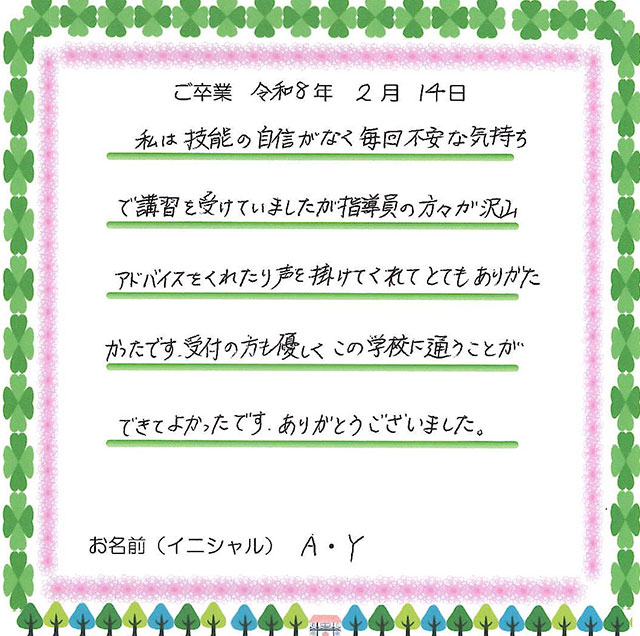 ご卒業 令和8年 2月 14日
私は技能の自信がなく毎回不安な気持ち
で講習を受けていましたが指導員の方々が沢山
アドバイスをくれたり声を掛けてくれてとてもありがた
かったです。受付の方も優しくこの学校に通うことが
できてよかったです。ありがとうございました。
お名前（イニシャル） A・Y